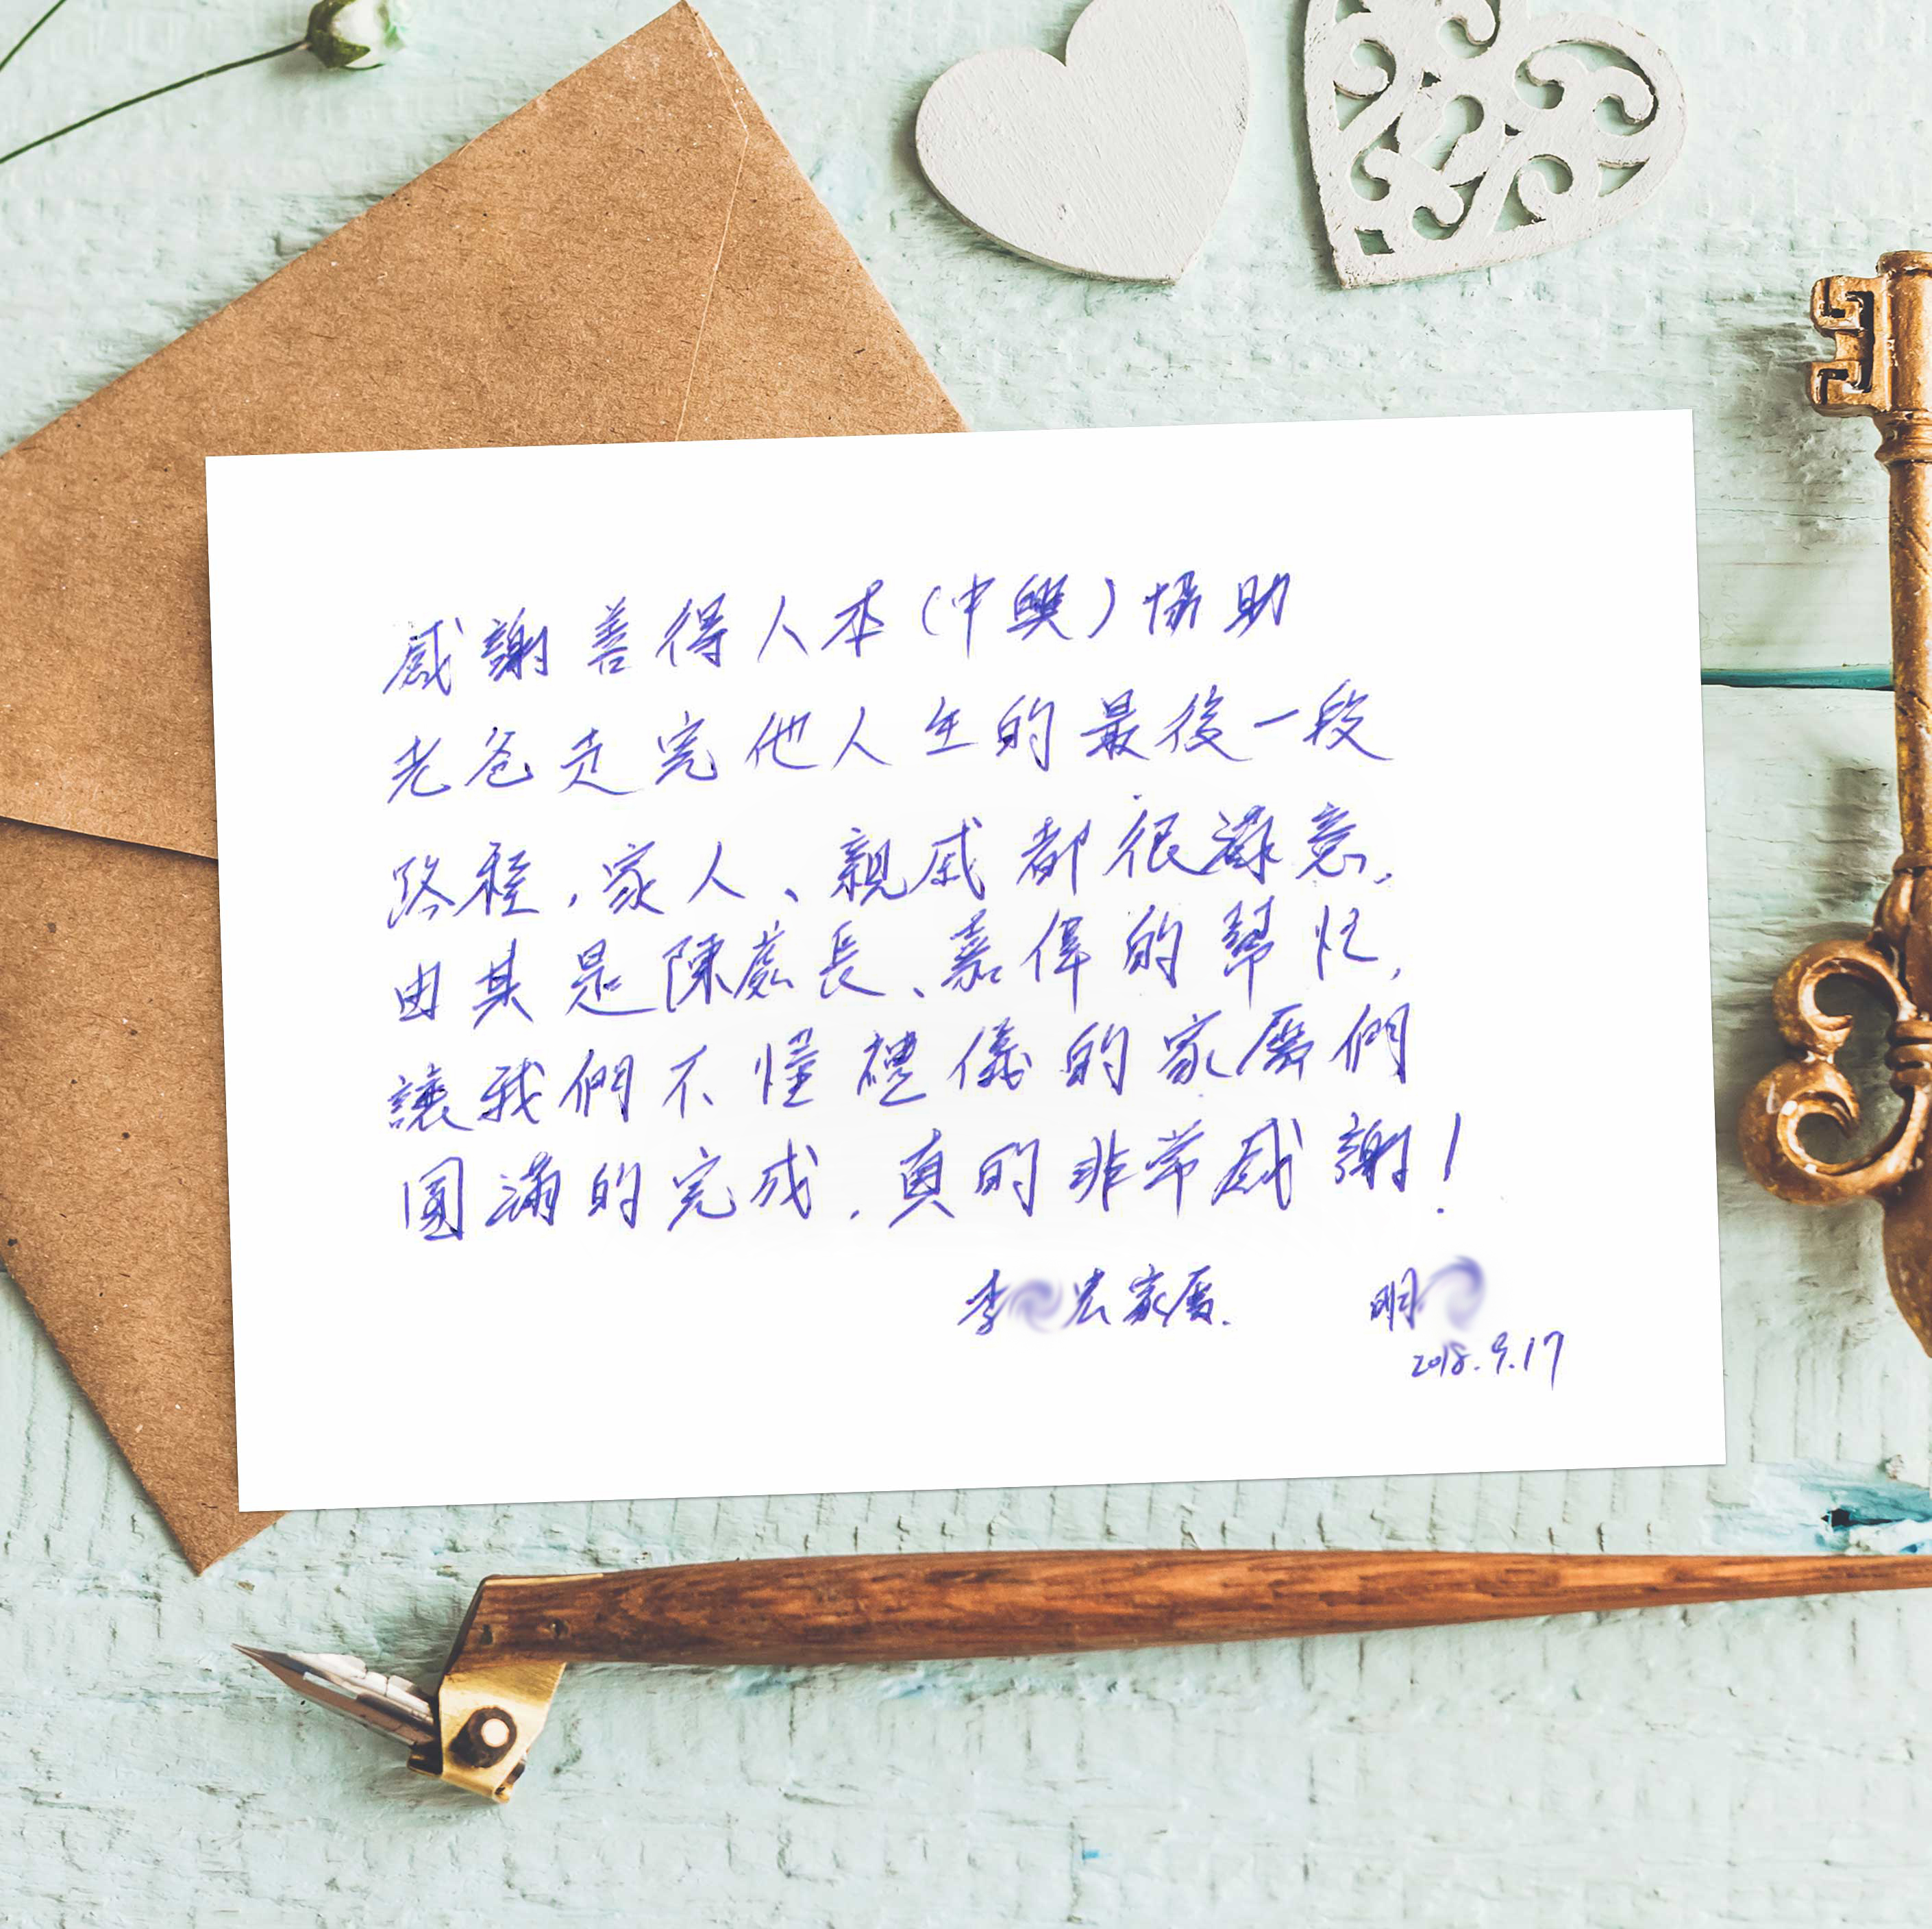 感謝善得人本(中興)協助
老爸走完他人生的最後一段
路程,家人、親戚都很滿意,
由其是陳處長、嘉偉的幫忙,
讓我們不懂禮儀的家屬們
圓滿的完成,真的非常感謝!
李宏家屬. 明
2018.9.17